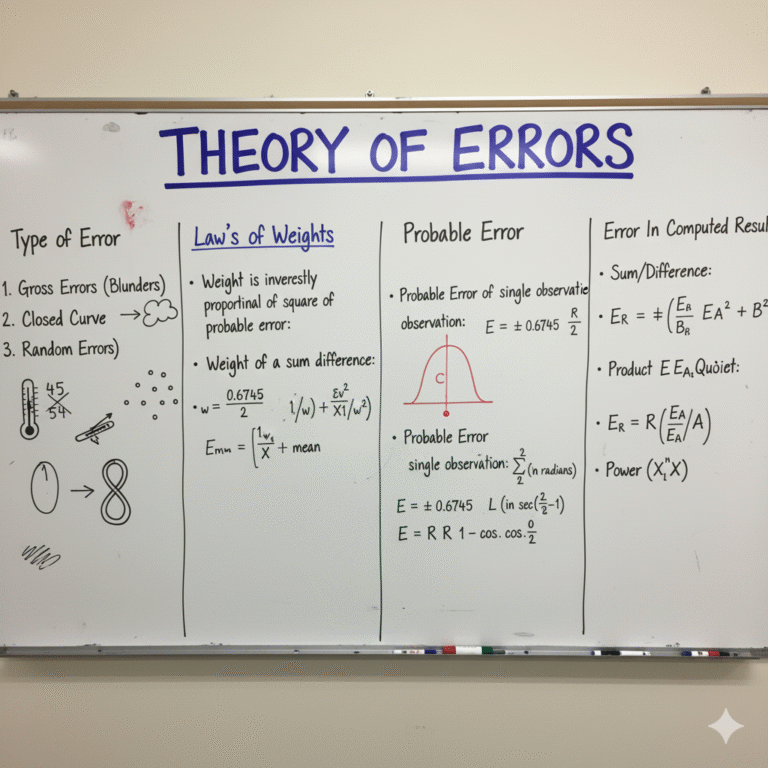 THEORY OF ERRORS
Type of Error
1. Gross Errors (Blunders)
2. Closed Curve
3. Random Errors)
45
54
Law's of Weights
• Weight is inverestly
proportinal of square of
probable error:
• Weight of a sum difference:
• w = 0.6745/2 1/w) + Σv²/X1/w²)
Emm = [1w₁/X + mean
Probable Error
• Probable Error of single observatie
observation: E = ± 0.6745 R/2
C
• Probable Error
single observation: Σ (n radians)
2
2
E = ± 0.6745 L (in sec(2/2-1)
E = R R 1 - cos. cos. 0/2
Error In Computed Resul
• Sum/Difference:
• E_R = ‡(E_R/B_R EA² + B²
• Product E E_A, Quòiet:
• E_R = R(E_A/E_A/A)
• Power (X₁ⁿX)